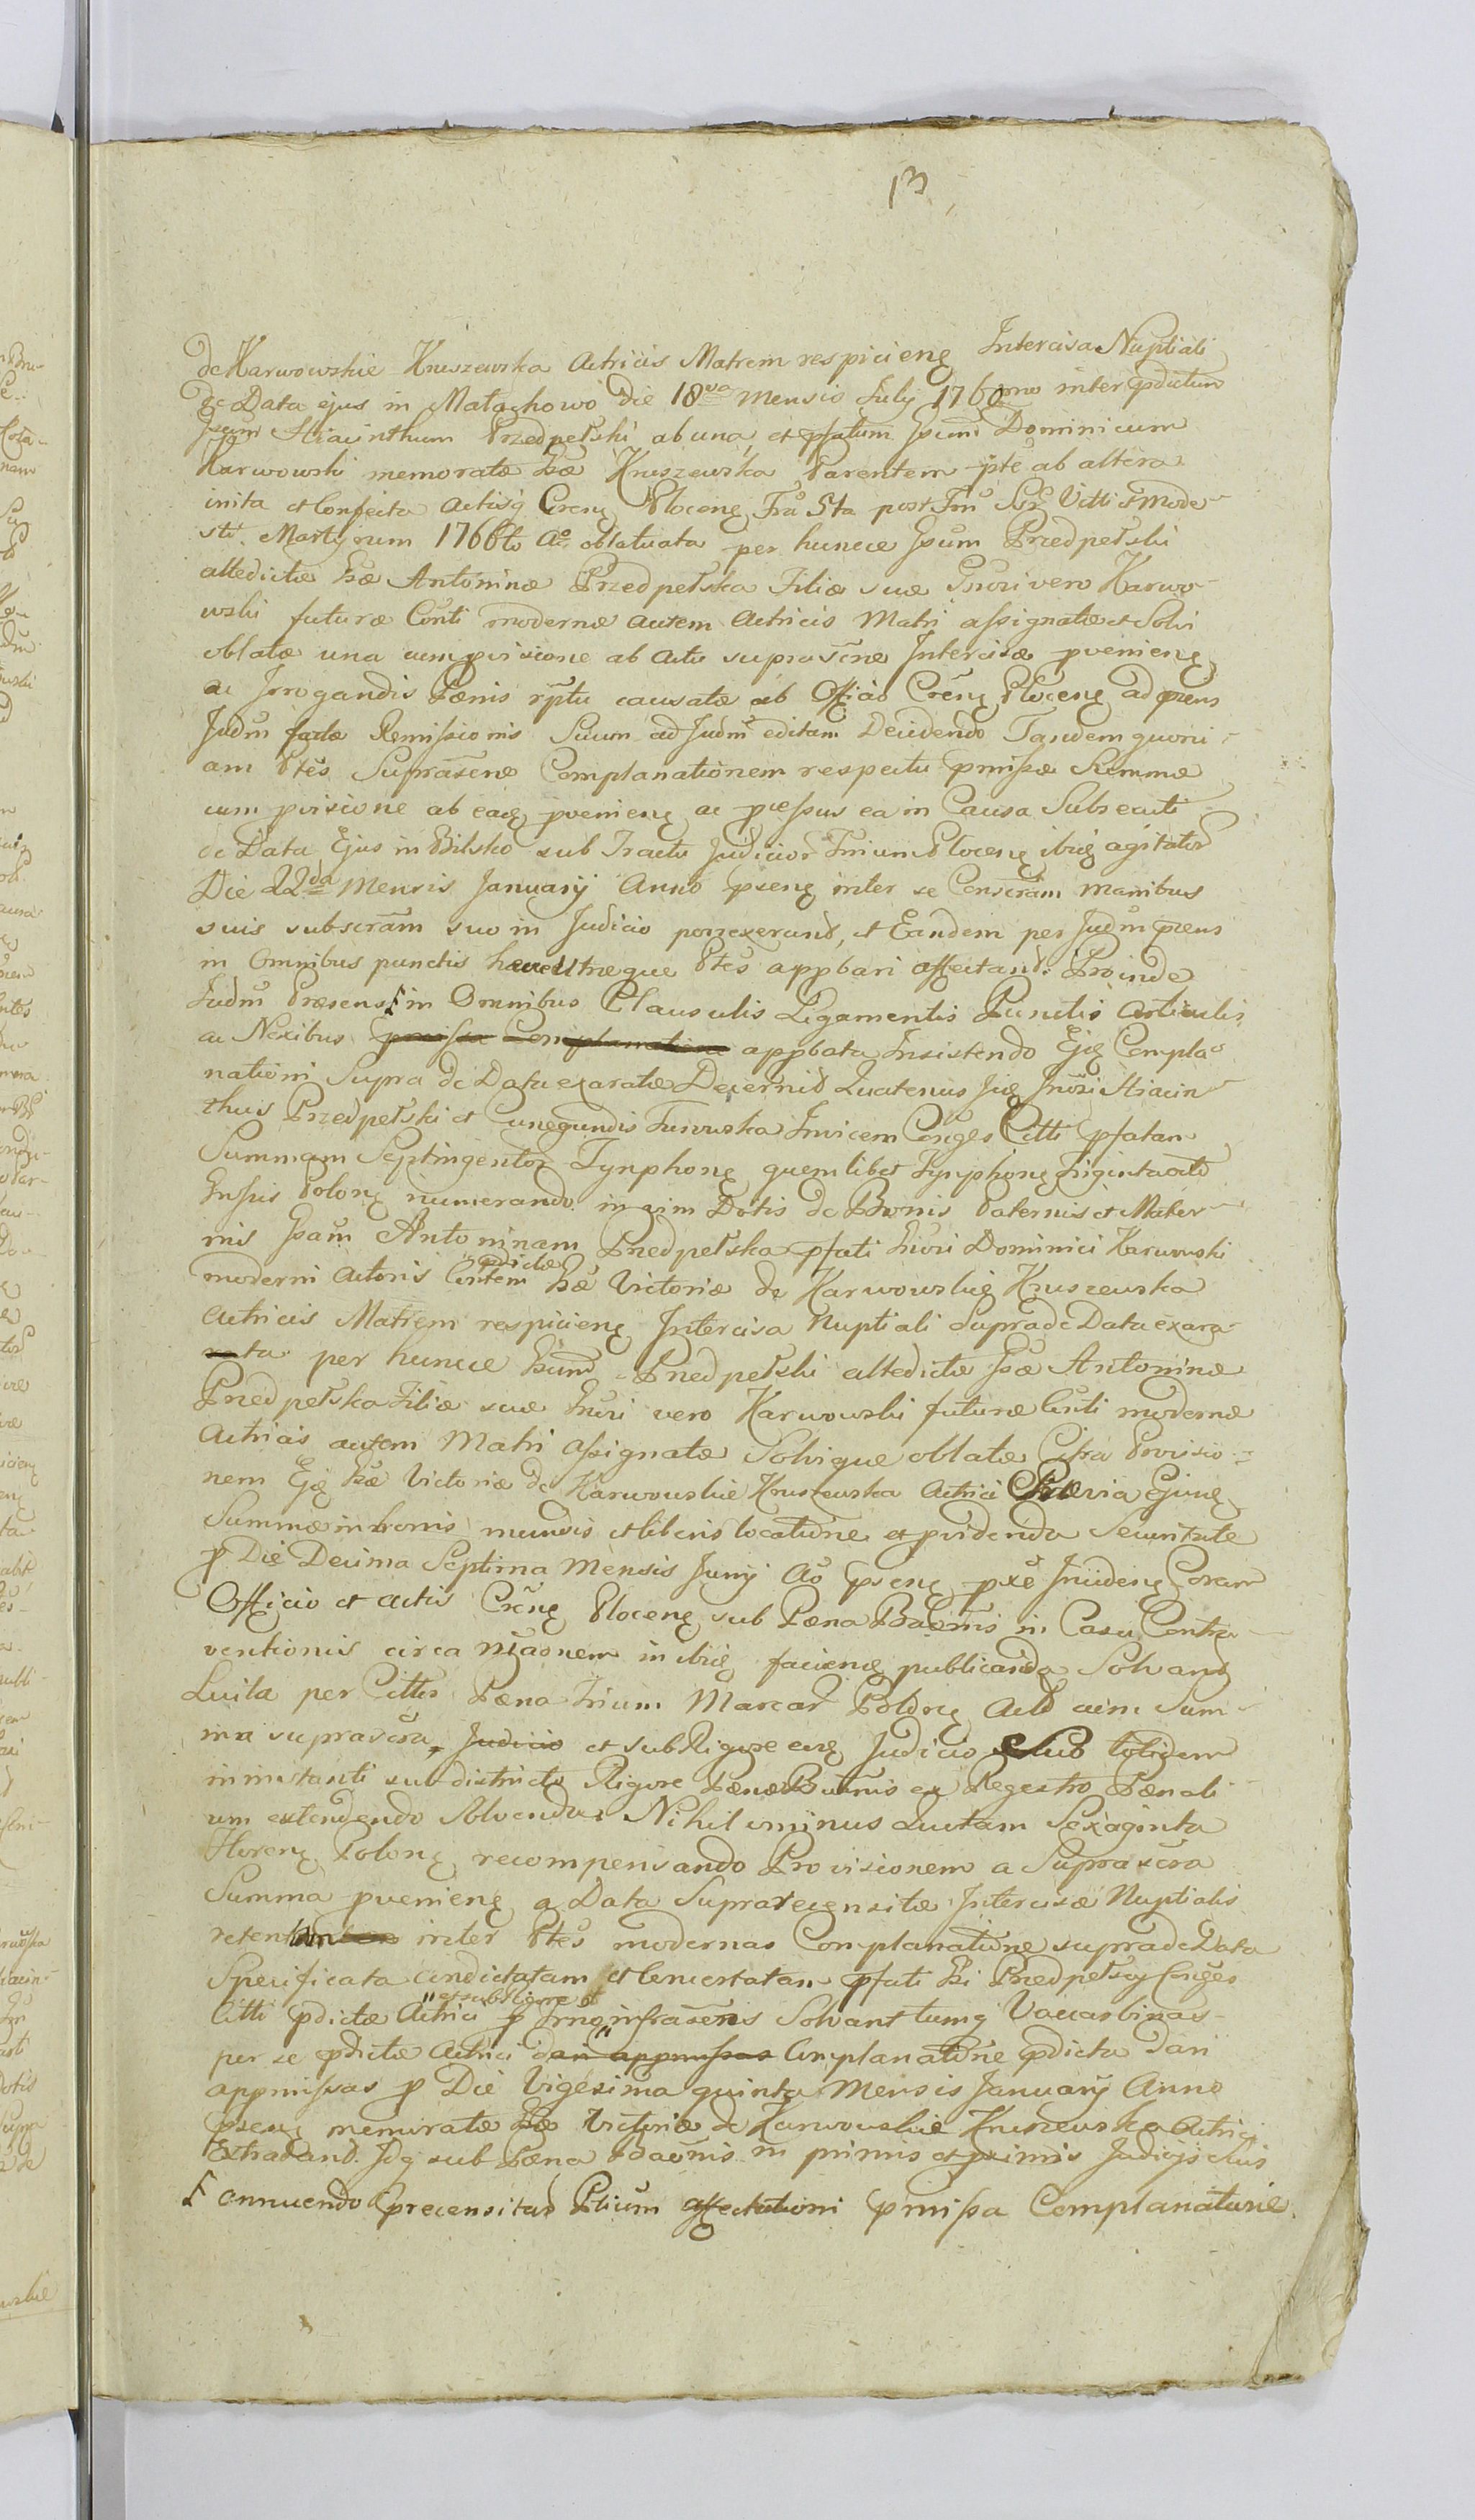 13
de Karwowskie Kruszewska Actricis Matrem respicieng Intercisa Nuptiali
de Data ejus in Małachowo Die 18va Mensis July 1760mo inter pdictum
Gsum Hiacinthum Przedpełski ab una, et pfatum Gsum Dominicum
Karwowski memoratæ Gsæ Kruszewska Parentem pte ab altera
inita et Confecta Actisq Crenẽ Plocenẽ Fra 5ta post Fm Ss Viti et Mode-
sti Martyrum 1766to Ao oblatuata per huncce Gsum Przedpełski
attedictæ Gsæ Antoninæ Przedpełska Filiæ suæ Gnrosi vero Karwo-
wski futuræ Conti modernæ autem Actricis Matri assignatæ et Solvi
oblatæ una cum pvisione ab Actu suprascriæ Intercisæ pvenieng
ac Irrogandis Pænis rptu causatæ ab Officio Creng Ploceng ad præns
Judm factæ Remissionis Suum ad Judm editam Decidendo Tandem quoni-
am Ptes Suprascne Complanationem respectu pmissæ Summæ
cum pvisione ab eadẽ pvenieng ac pcessus ea in Causa Subsecuti
de Data Ejus in Bilsko sub Tractu Judicior Trium Ploceng ibiẽ agitator
Die 22da Mensis January Anno pseng inter se Conscram manibus
suis subscram suo in Judicio porrexerunt, et Eandem per Judm præns
in Omnibus punctis hæce Utræque Ptes appbari affectant. Proinde
Judm Præsens [ in Omnibus Clausulis Ligamentis Punctis Articulis
ac Nexibus pmissa Complanatione appbata Insistendo Ejẽ Compla-
nationi Supra de Data exaratæ Decernit Quatenus Gnrosi Hiacin-
thus Przedpełski et Cunegundis Invicem Conges Citti pfatam
Summam Septingentor Tynphong quemlibet Tynphong Triginta octo
Grossis Polong numerando in vim Dotis de Bonis Paternis et Mater-
nis Gsam Antoninam Przedpełska pfati Gnrosi Dominici Karwowski
moderni Actoris Contem pdictæ Gsæ Victoriæ de Karwowskie Kruszewska
Actricis Matrem respicieng Intercisa Nuptiali Supra de Data exara-
ta per huncce Gsum Przedpełski attedictæ Gsæ Antoninæ
Przedpełska Filiæ suæ Gnrosi vero Karwowski futuræ Conti modernæ
Actricis autem Matri assignatæ Solvique oblatæ Citra Provisio-
nem Ejẽ Gsæ Victoriæ de Karwowskie Kruszewska Actrici Prævia Ejusẽ
Summæ in bonis mundis et liberis locatione et pvidenda Securitate
p Die Decima Septima Mensis Juny Ao pseng pxe Incideng Coram
Officio et Actis Creng Ploceng sub Pæna Bannis in Casu Contra-
ventionis circa in ibiẽ facieng publicanda Solvant
Luita per Cittos Pæna Trium Marcar Polong Act cum Sum-
ma suprascra, Judicio et sub Rigore eoẽ Judicio Sub totidem
in instanti sub districto Rigore Pænæ Bannis ex Regestro Pænali-
um extendendo Solvenda. Nihilominus Quotam Sexaginta
Floreng Polong recompensando Provisionem a Suprascra
Summa pvenieng a Data Suprarecensitæ Intercisæ Nuptialis
retentam inter Ptes modernas Complanatione supra de Data
Specificata condictatam et Concertatam pfati Gsi Przedpełscy Conges
Citti pdictæ Actrici et sub Rigore et p Trno infrascris Solvant tumq Vaccas binas
per se pdictæ Actrici dari appmissas Complanatione pdicta Dari
appmissas p Die Vigesima quinta Mensis January Anno
pseng memoratæ Gsæ Victoriæ de Karwowskie Kruszewska Actrici
Extradant. Idq sub Pæna Bannis in primis et ximis Judicijs
[ annuendo precensitar Ptium affectationi pmissa Complanatione.